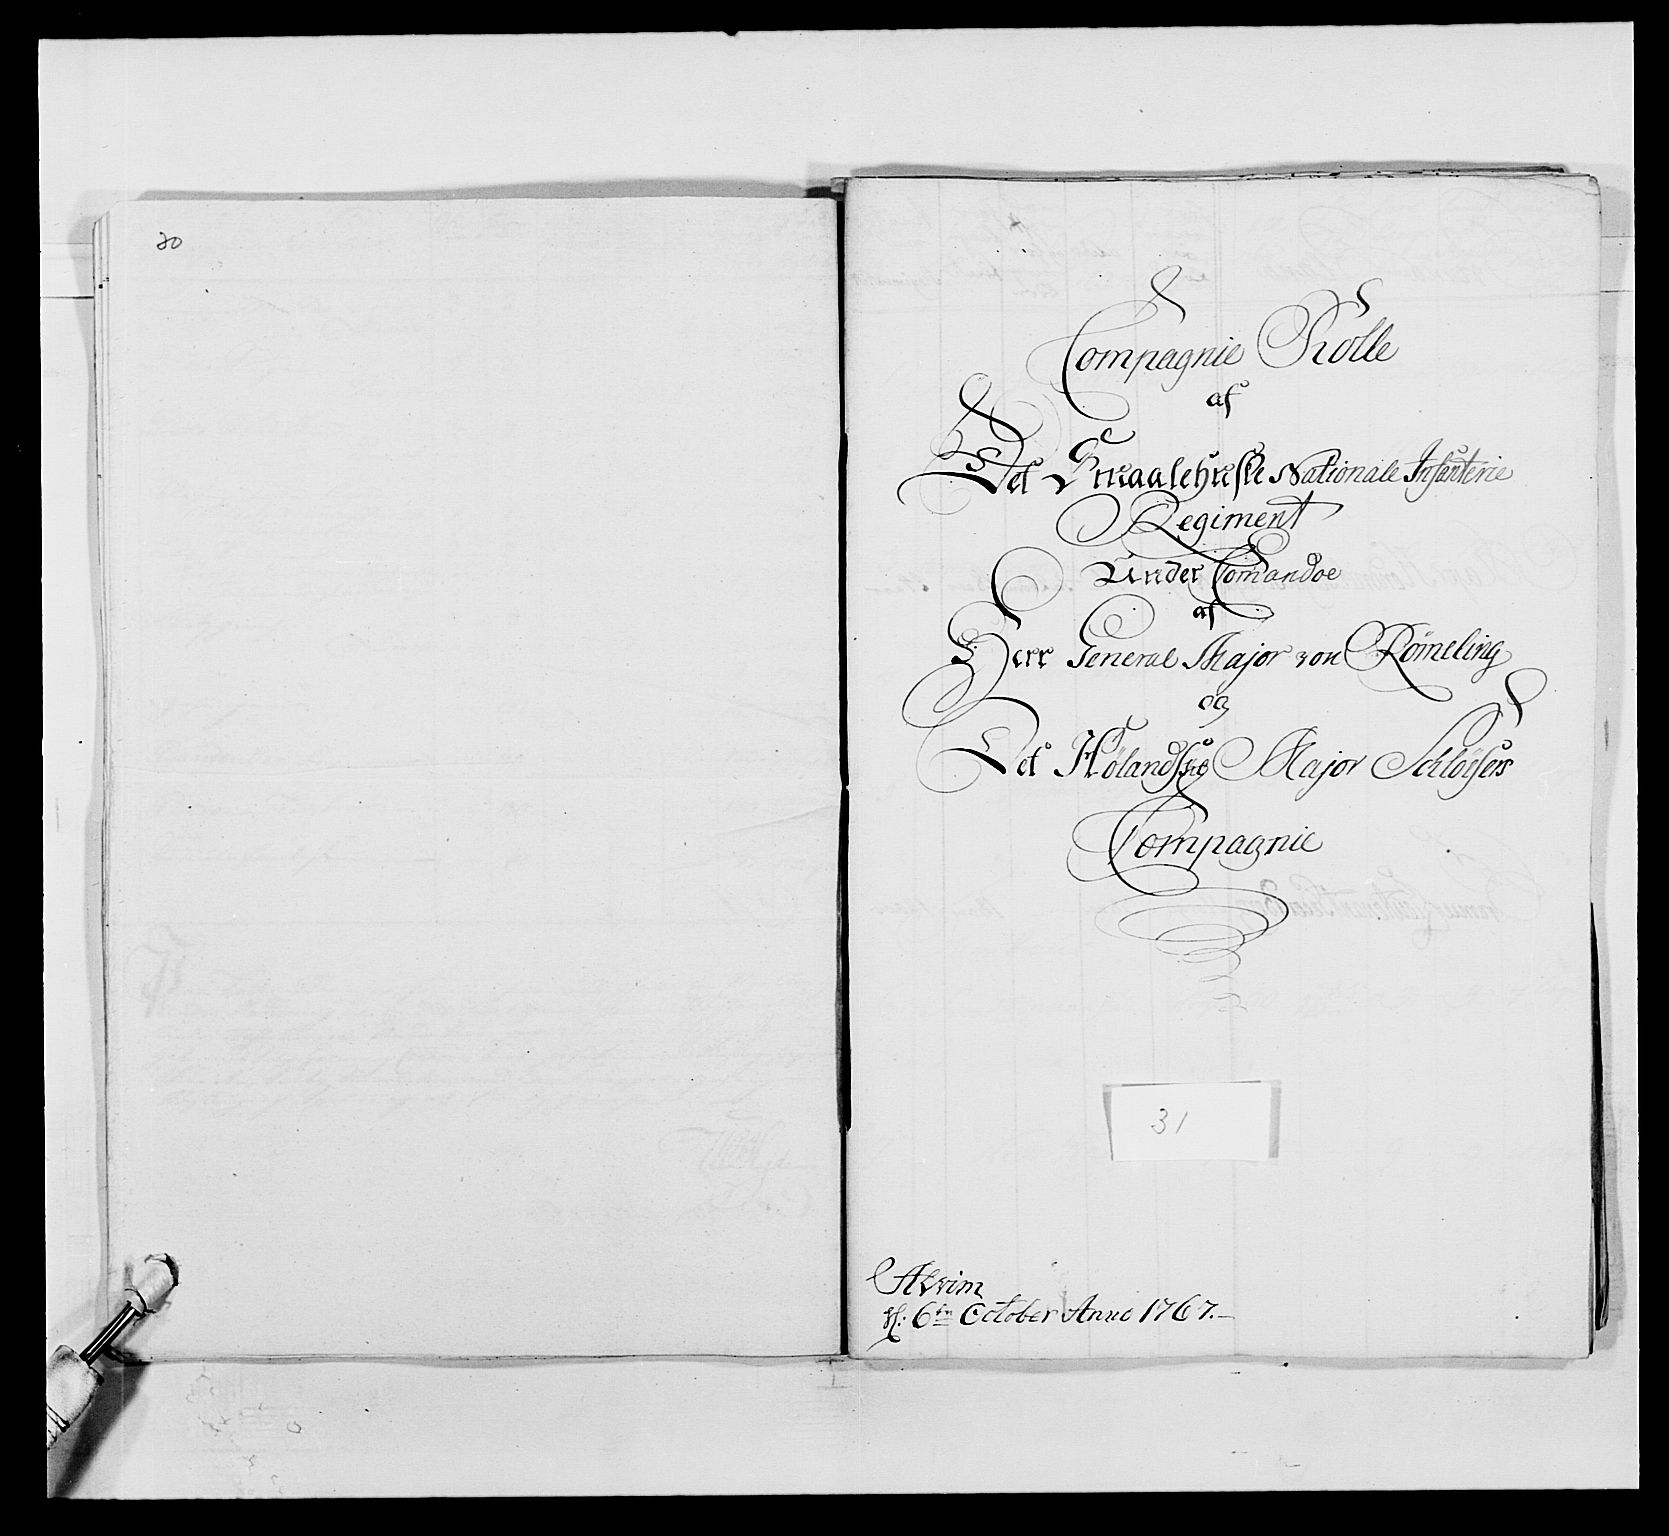 30
Compagnie Rolle
af
Det Smaalehnske Nationale Infanterie
Regiment
Under Comandoe
af
Herr General Major von Römeling
og
Det Hölandske Major Schlöÿsers
Compagnie
31
Alvim
d: 6te October Anno 1767.